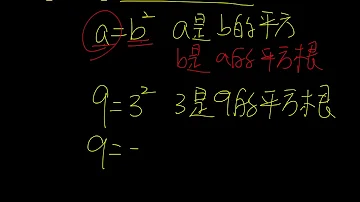 a=b² a是b的平方
b是a的平方根
9=3² 3是9的平方根
9=-